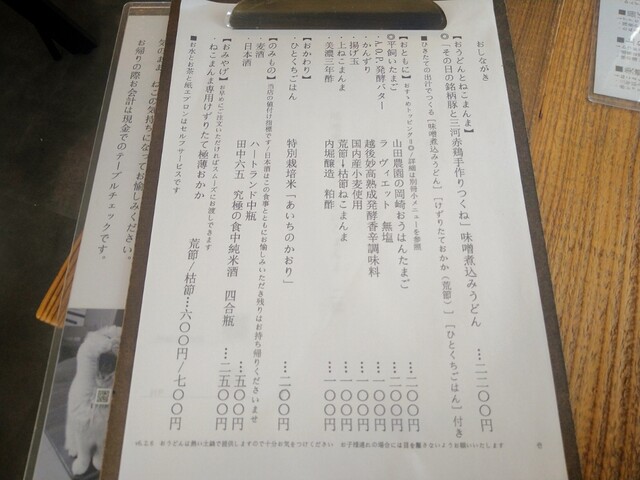 おしながき
【おうどんとねこまんま】
◎「その日の銘柄豚と三河赤鶏手作りつくね」味噌煮込みうどん …二二〇〇円
■ひきたての出汁でつくる［味噌煮込みうどん］［けずりたておかか（荒節）］［ひとくちごはん］付き
【おともに】おすすめトッピング◎/詳細は別冊小メニューを参照
◎平飼いたまご 山田農園の岡崎おうはんたまご …二〇〇円
・A.O.P.発酵バター ラ ヴィエット 無塩 …二〇〇円
・かんずり 越後妙高熟成発酵香辛調味料 …一〇〇円
・揚げ玉 国内産小麦使用 …一〇〇円
・上ねこまんま 荒節→枯節ねこまんま …一〇〇円
・美濃三年酢 内堀醸造 粕酢 …一〇〇円
【おかわり】
・ひとくちごはん 特別栽培米「あいちのかおり」 …二〇〇円
【のみもの】当店の値付け指標です/日本酒はこの食事とともにお愉しみいただき残りはお持ち帰りくださいませ
・麦酒 ハートランド中瓶 …五〇〇円
・日本酒 田中六五 究極の食中純米酒 四合瓶 …二五〇〇円
【おみやげ】お早めにご注文いただければスムーズにお渡しできます
・ねこまんま専用けずりたて極薄おかか 荒節/枯節…六〇〇円/七〇〇円
■お水とお茶と紙エプロンはセルフサービスです
おうどんは熱い土鍋で提供しますので十分お気をつけください お子様連れの場合には目を離さないようお願いいたします
ねこの気持ちになってお愉しみください。
お帰りの際お会計は現金でのテーブルチェックです。